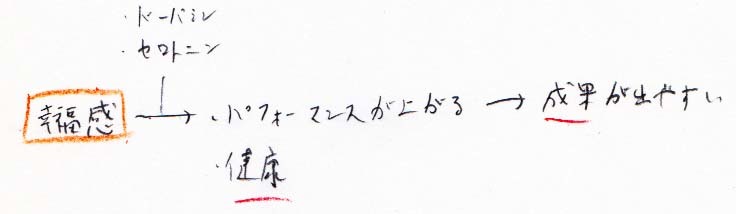 ・ドーパミン
・セロトニン
幸福感 → ・パフォーマンスが上がる → 成果が出やすい
・健康